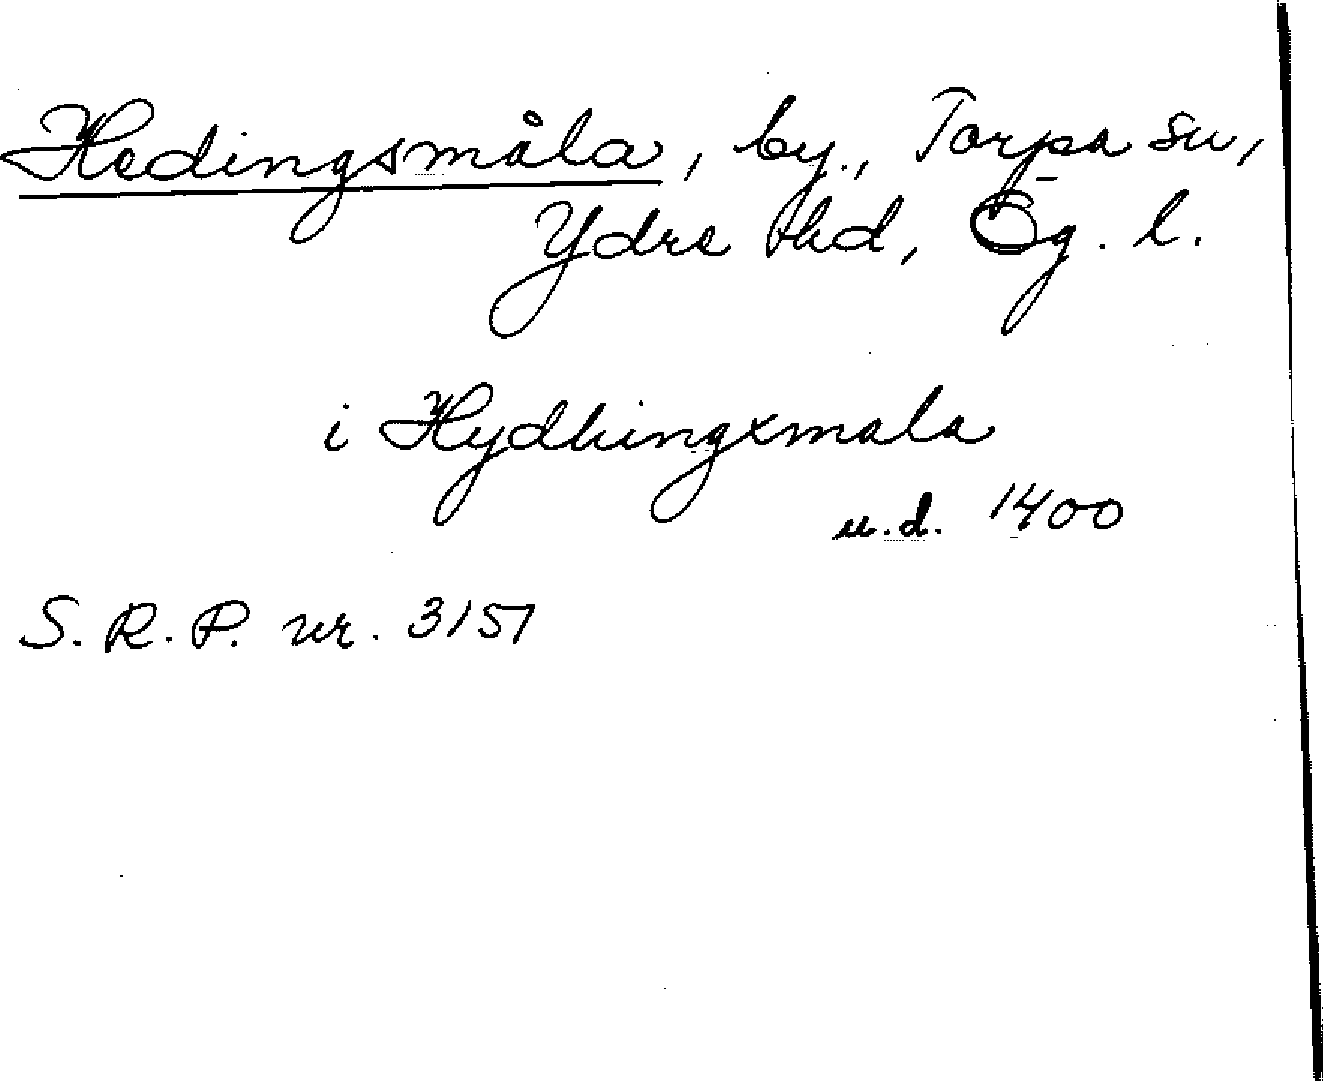 Hedingsmåla, by., Torpa sn,
Ydre hd, Ög. l.
i Hydhingxmala
u.d. 1400
S. R. P. nr. 3151